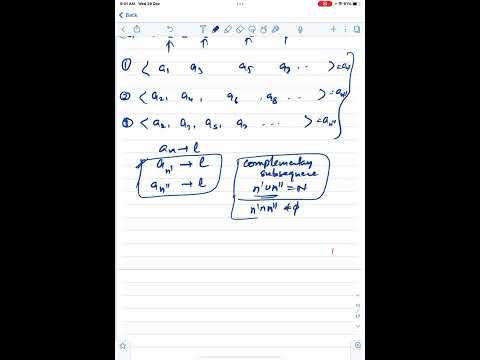 5:01 AM Wed 20 Dec
Back
① < a₁ a₃ a₅ a₇ .. >
② < a₂, a₄, a₆, a₈ ... >
③ < a₂, a₇, a₅, a₇ ... >
aₙ → l
aₙ' → l
aₙ" → l
complementary
subsequence
n'∪n" = N
n'∩n" ≠ φ